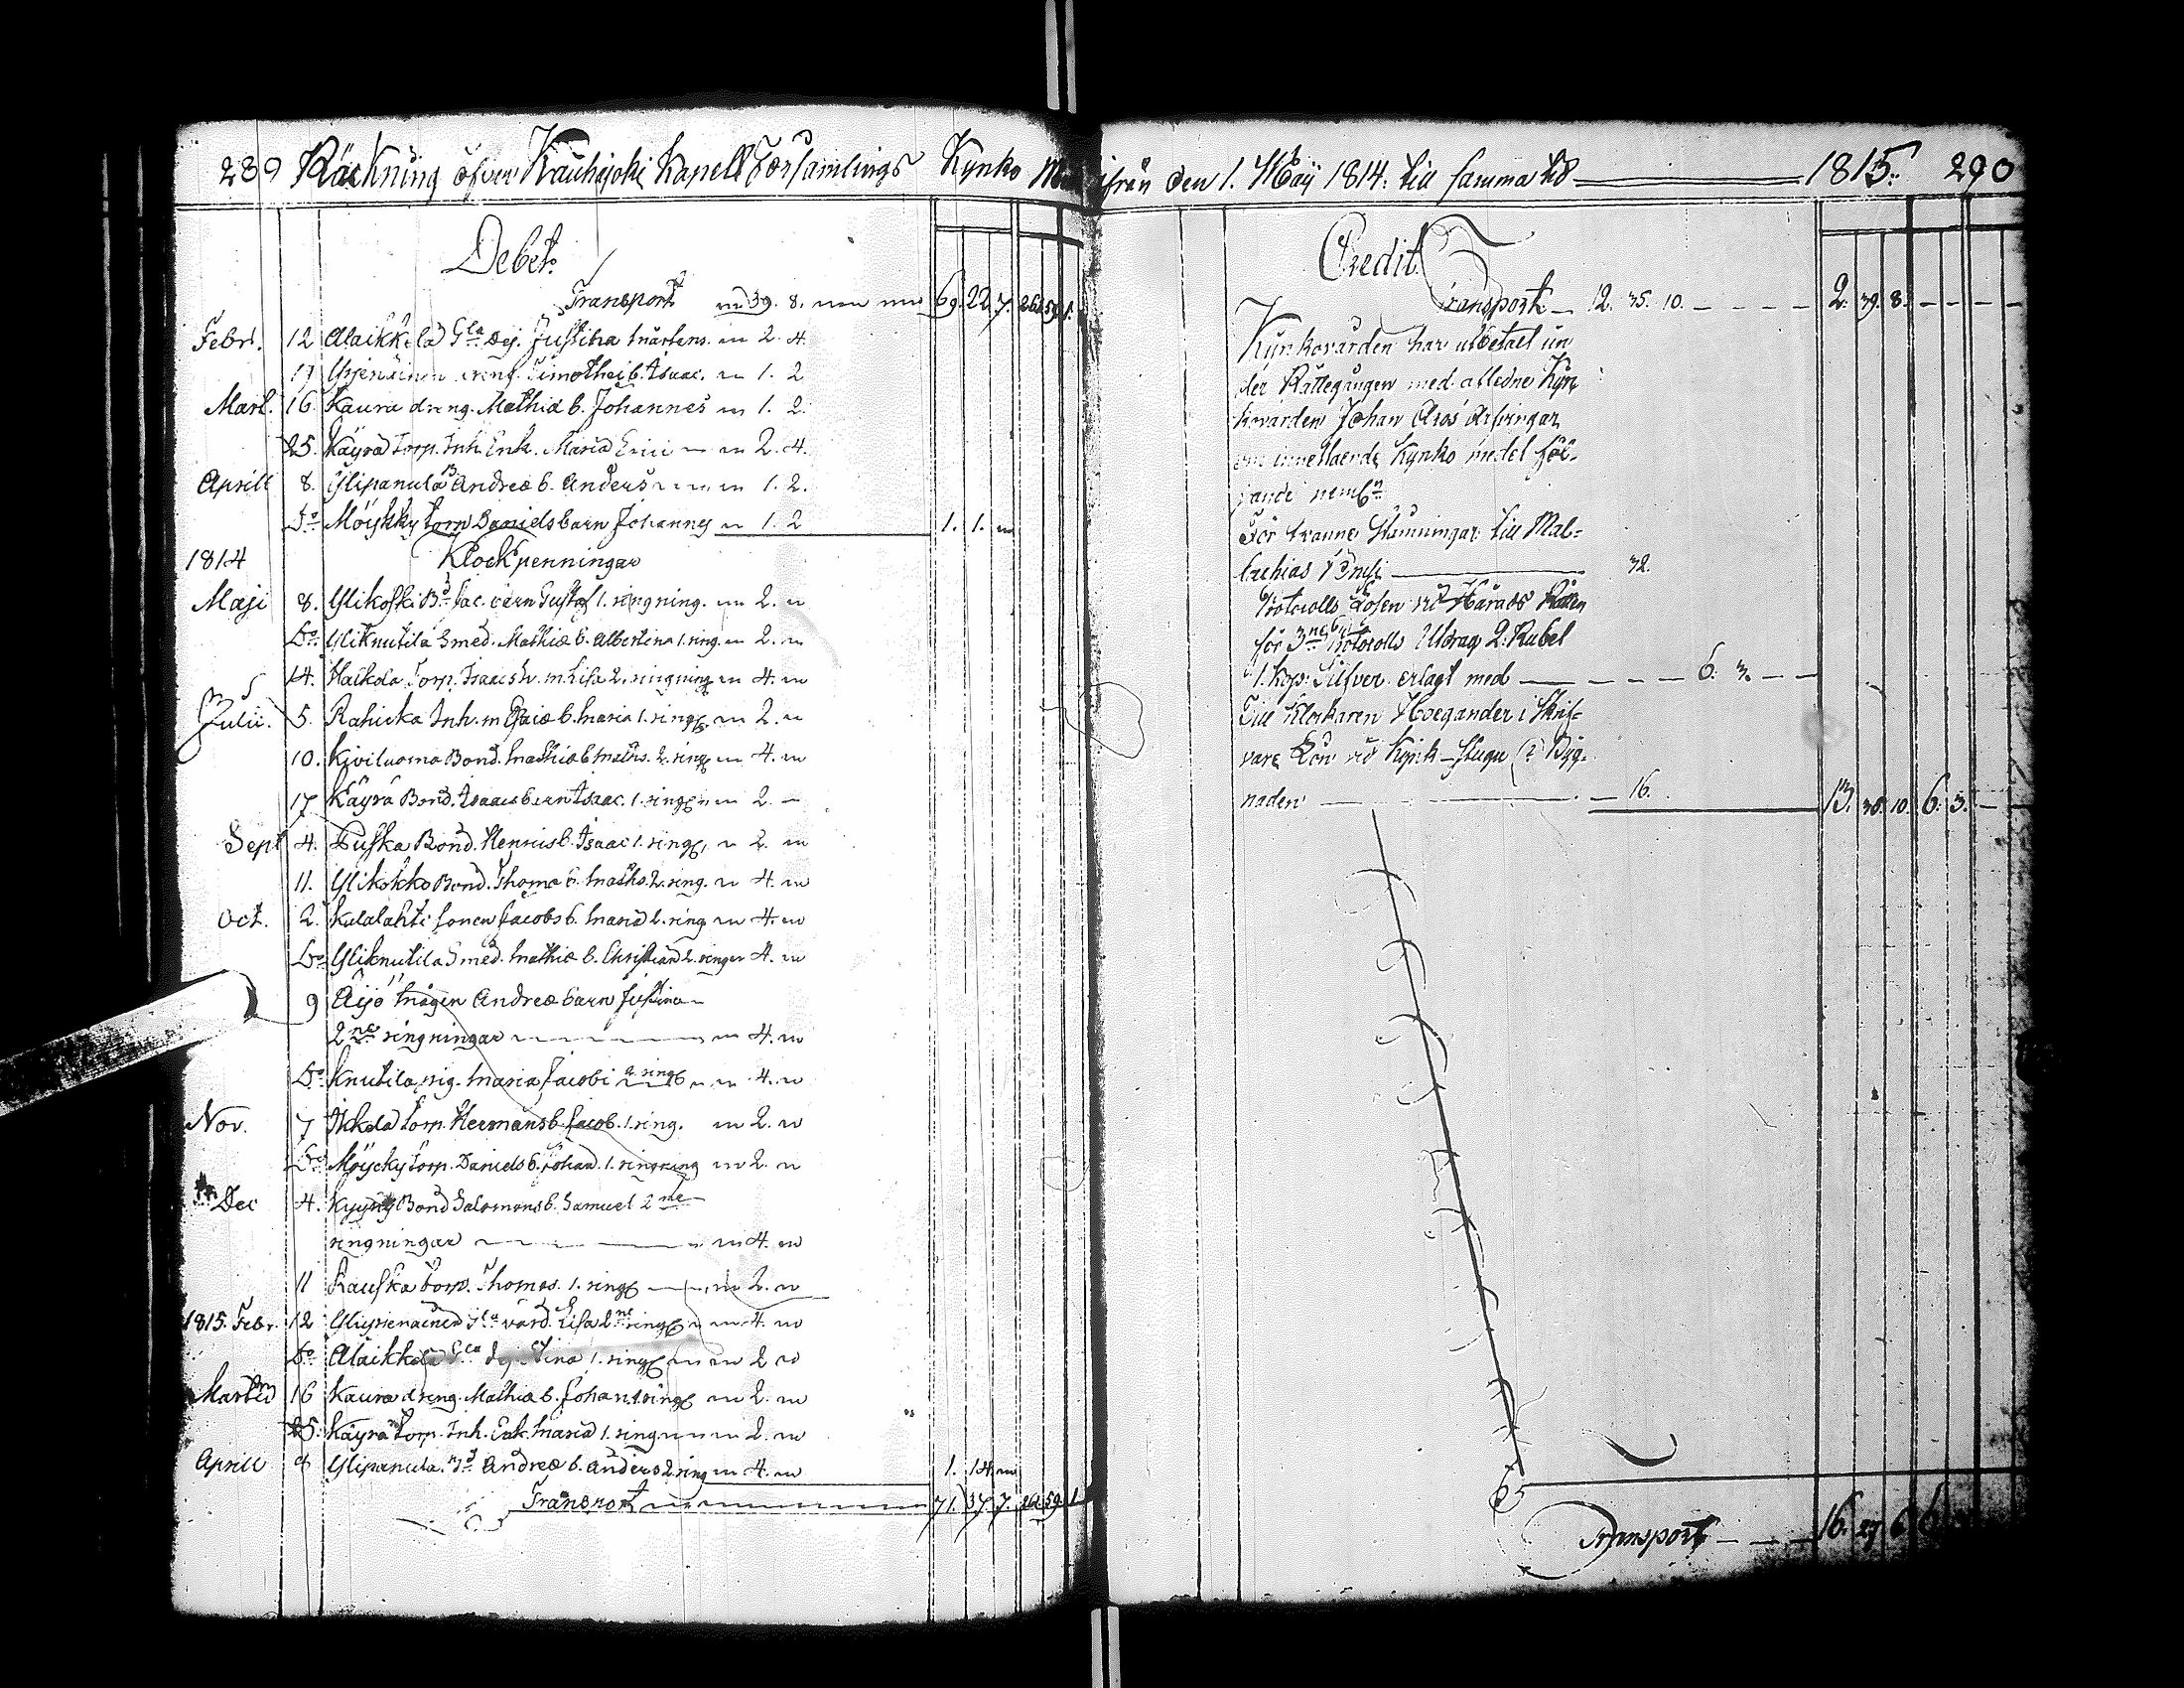 289 Räckning öfver Kauhajoki Kapell Församlings Kyrko
Debet.
Transport 39. 8. 69. 22. 7.
Febr. 12 Alaikkela Gla Dej. Justina Mårtens. 2. 4
17 b. Isaac. 1. 2
Mart. 16. Kaura dreng. Mathiæ b. Johannes 1. 2.
25. Käyrä Torp. Inh. Enk. Maria Erici 2. 4.
Aprill 8. Ylipanula Andreæ b. Anders 1. 2.
Do Möykky Torp Daniels barn Johannes 1. 2 1. 1.
1814 Klockpenningar
Maji 8. Ylikoski Bd Jac. barn Gustaf 1. ringning. 2.
Do Yliknutila Smed. Mathiæ b. Albertina 1. ring. 2.
14. Haikola Torp. Isaacs h. m. Lisa 2. ringning 4.
Julii. 5. Rahicka Inh. b. Maria 1. ring 2.
10. Kiviluoma Bond. Mathiæ b. Maths. 2. ring 4.
17 Käyrä Bond. Isaacs barn Isaac. 1. ring 2.
Sept 4. Puska Bond. Henrics b. Isaac 1. ring 2.
11. Ylikokko Bond. Thomæ b. Maths. 2. ring. 4.
Oct. 2. Jacobs b. Maria 2. ring 4.
Do Yliknutila Smed. Mathiæ b. Christian 2. ring 4.
9 Äijö Mågen Andreæ barn Justina
2ne ringningar 4.
Do Knutila pig. Maria Jacobi 2 ring 4.
Nov. 7 Ikkela Torp. Hermans b. Jacob. 1. ring. 2.
Do Möycky Torp. Daniels b. Johan. 1. ringning 2.
Dec 4. Kyyny Bond Salomons b. Samuel 2ne
ringningar 4.
11 Rauska Torp. Thomas. 1. ring 2.
1815. Febr. 12 Gla värd. Lisa 2ne ring 4.
Do Alaikkela Gla dej Stina 1. ring 2
Martii 16 Kaura dreng. Mathiæ b. Johan 1. ring 2.
25. Käyrä Torp. Inh. Enk. Maria 1. ring 2.
Aprill 8 Ylipanula. Bd Andreæ b. Anders 2. ring 4. 1. 14.
Transport 71. 37. 7. 59. 1
ifrån den 1. Maij 1814. till samma tid 1815. 290
Credit
Transport 12. 35. 10. 2. 39. 8.
Kyrkovärden har utbetalt un
der Rättegången med afledne Kyr
kovärden Johan Aros Arfvingar
om innestående Kyrko medel föl-
jande nembn
För tvänne Stämningar till Mal-
achias 32.
Protocolls Lösen vid Härads Rätten
för 3ne Protocolls Utdrag 2. Rubel
1. Kop: Silfver erlagt med 6. 3.
Till Klockaren Hoegander i Skrif-
vare Lön vid Kyrk-stugu Byg-
naden 16. 13. 36. 10. 6. 3.
Transport 16. 27 6 6